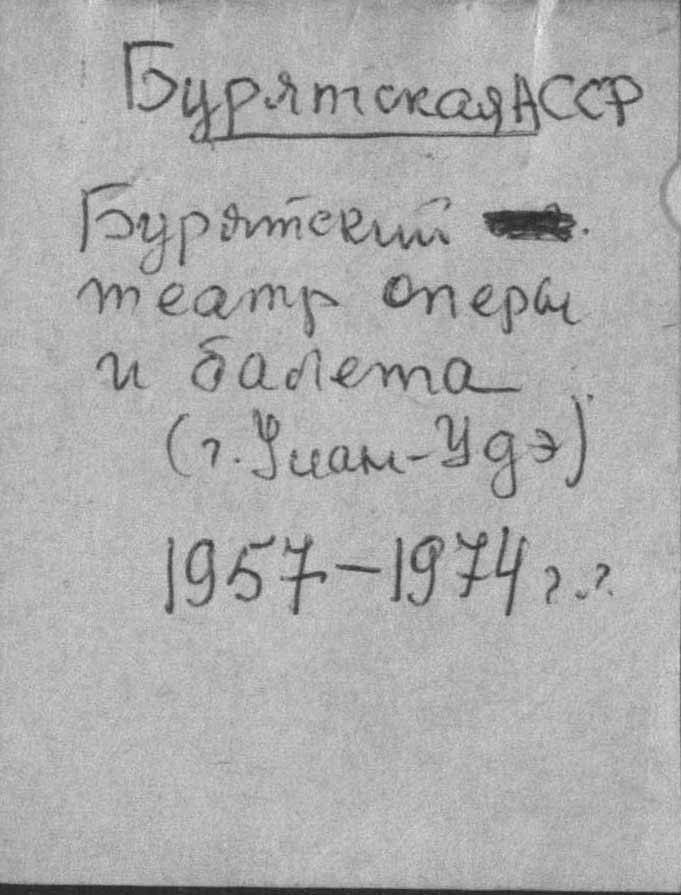 Бурятская АССР
Бурятский
театр оперы
и балета
(г. Улан-Удэ)
1957-1974 г.г.